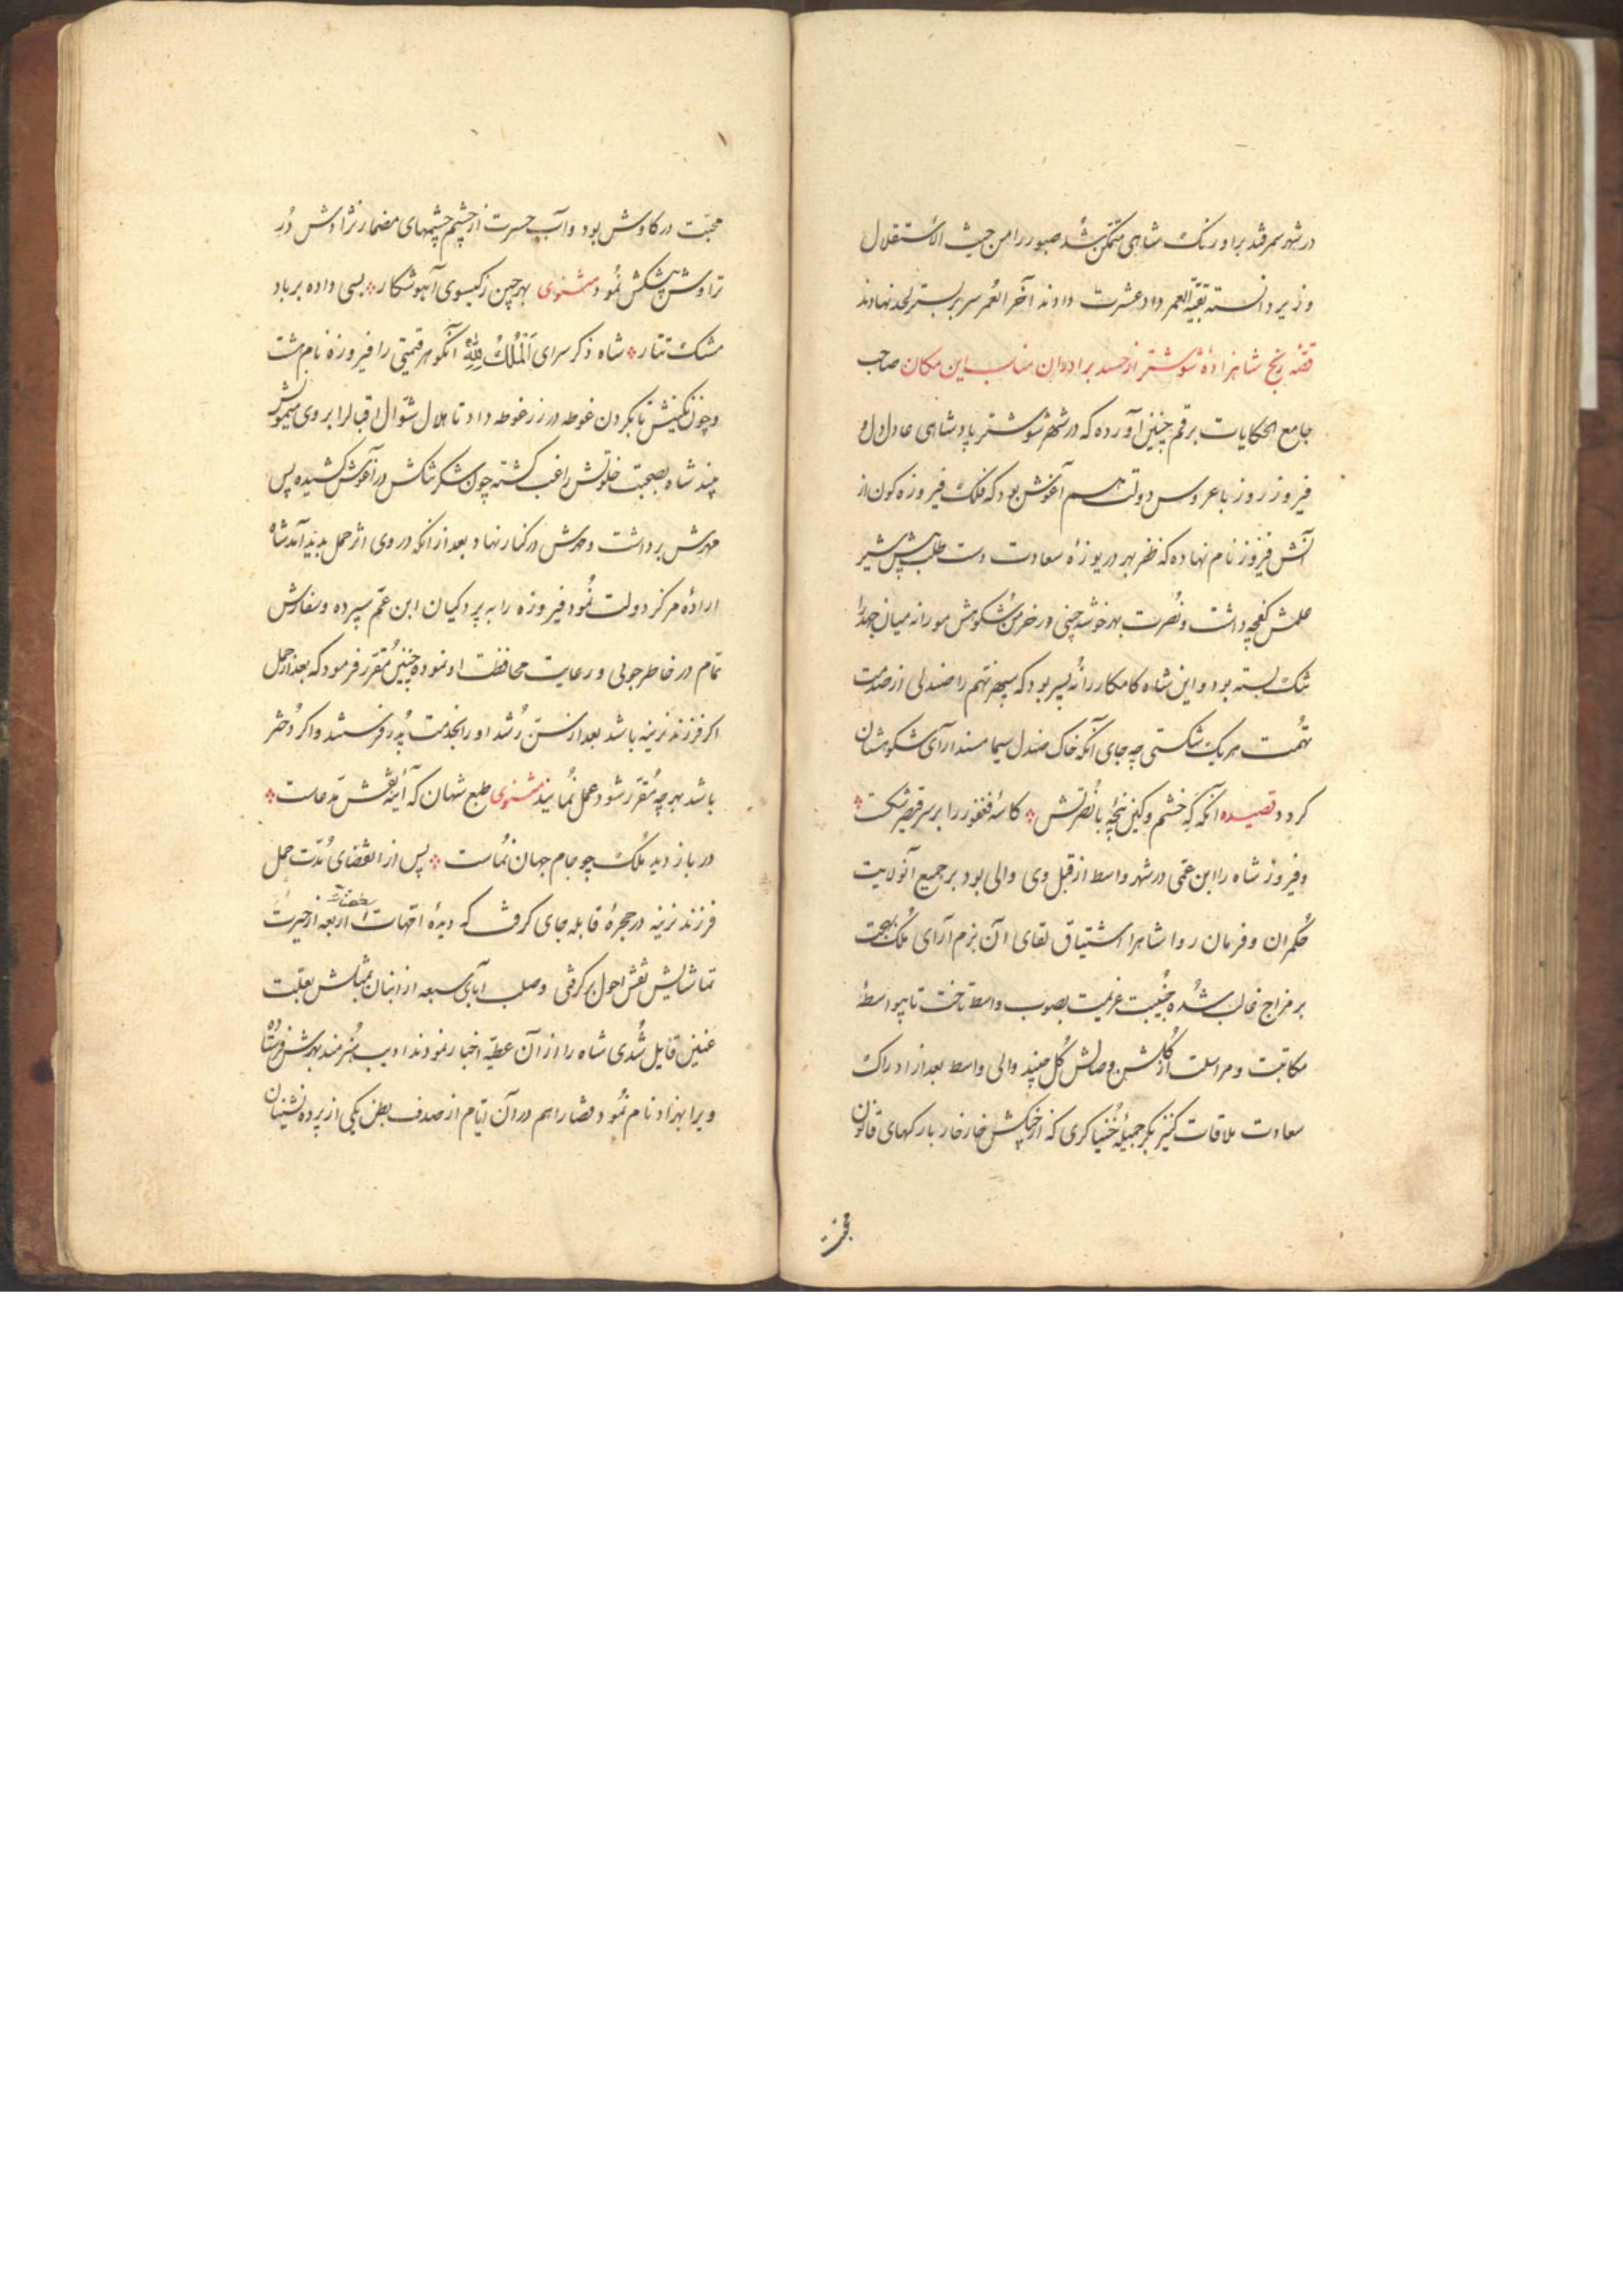 در شهر سمرقند بر اورنک شاهی متمکن شد صبور را من حیث الاستقلال
وزیر دانسته بقیة العمر داد عشرت دادند آخر العمر سر بر بستر لحد نهادند
قصّه رنج شاهزادهٔ شوشتر از حسد برادران مناسب این مکان صاحب
جامع الحکایات برقم چنین آورده که در شهر شوشتر پادشاهی عادل دل و
فیروز روز با عروس دولت هم آغوش بود که فلک فیروزه کون از
آتش فیروز نام نهاده که ظفر بهر دریوزهٔ سعادت دست طلب پیش شیر
علمش کفچه داشت و نُصرت بهر خوشه چینی در خرمن شکوهش مورانه میان جهد را
تنک بسته بود و این شاه کامکار را نُه پسر بود که سپهر نهم را صندلی از صدمت
تهمت هر یک شکستی چه جای آنکه خاک صندل سیما مسند آرای شکوهشان
کردد قصیده آنکه که خشم و کین پنجهٔ با نُصرتش کاسهٔ فغفور را بر سر قیصر شکست
و فیروز شاه را ابن عمّی در شهر واسط از قبل وی والی بود بر جمیع آنولایت
حُکمران و فرمان روا شاهرا اشتیاق لقای آن بزم آرای مُلک بهجت
بر مزاج غالب شده جنیبت عزیمت بصوب واسط تاخت تا بیواسطهٔ
مکاتبت و مراسلت از کُلشن وصالش کُل چیند والی واسط بعد از ادراک
سعادت ملاقات کنیز بکر جمیلهٔ خُنیاکری که از چنکش خار خار بارکهای قانون
محبّت
محبّت در کاوش بود و آب حسرت از چشم چشمهای مضمار نژادش دُر
تراوش پیشکش نُمود مثنوی بهر چین ز کیسوی آهو شکار بسی داده بر باد
مشک تتار شاه ذکر سرای اَلمُلکُ لِلّهِ آنکوهر قیمتی را فیروزه نام هشت
و چون نکینش تا بکردن غوطه در زر غوطه داد تا هلال شوّال اقبالرا بروی میمونش
بیند شاه بصحبت خلوتش راغب کشته چون شکر تنکش در آغوش کشیده پس
مهرش برداشت و مهرش در کنار نهاد بعد از انکه در وی اثر حمل پدید آمد شاه
ارادهٔ مرکز دولت نُمود فیروزه را به پردکیان ابن عمّ سپرده و سفارش
تمام در خاطر جویی و رعایت محافظت او نموده چنین مُقرر فرمود که بعد از حمل
اکر فرزند نرینه باشد بعد از سنّ رُشد او را بخدمت پدر فرستند و اکر دُختر
باشد بهر چه مُقرّر شود عمل نُمایند مثنوی طبع شهان که آیینهٔ نقش مدعاست
در بازدید مُلک چو جام جهان نُماست پس از انقضای مُدّت حمل
فرزند نرینه در حجرهٔ قابله جای کرفت که دیدهٔ امّهات اربعه از حیرت
تماشایش نقش احول بر کرفتی و صلب آبای سبعه از اتیان بمثلش بعلّت
عنین قایل شدی شاه را از آن عطیّه اخبار نمودند ادیب هُنرمند بهرش فرستاده
ویرا بهزاد نام نُمود قضا را هم در آن ایّام از صدف بطن یکی از پرده نشینان